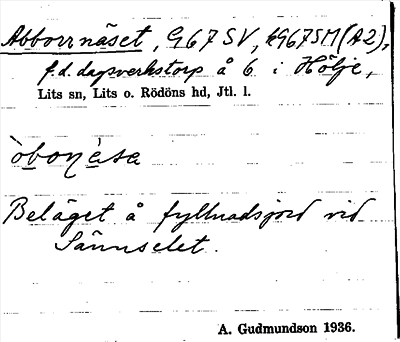 Abborrnäset, G67SV, k967SM(A2),
f.d. dagsverkstorp å 6 i Hölje,
Lits sn, Lits o. Rödöns hd, Jtl. l.
òboṇèse
Beläget å fyllnadsjord vid
Sännselet.
A. Gudmundson 1936.